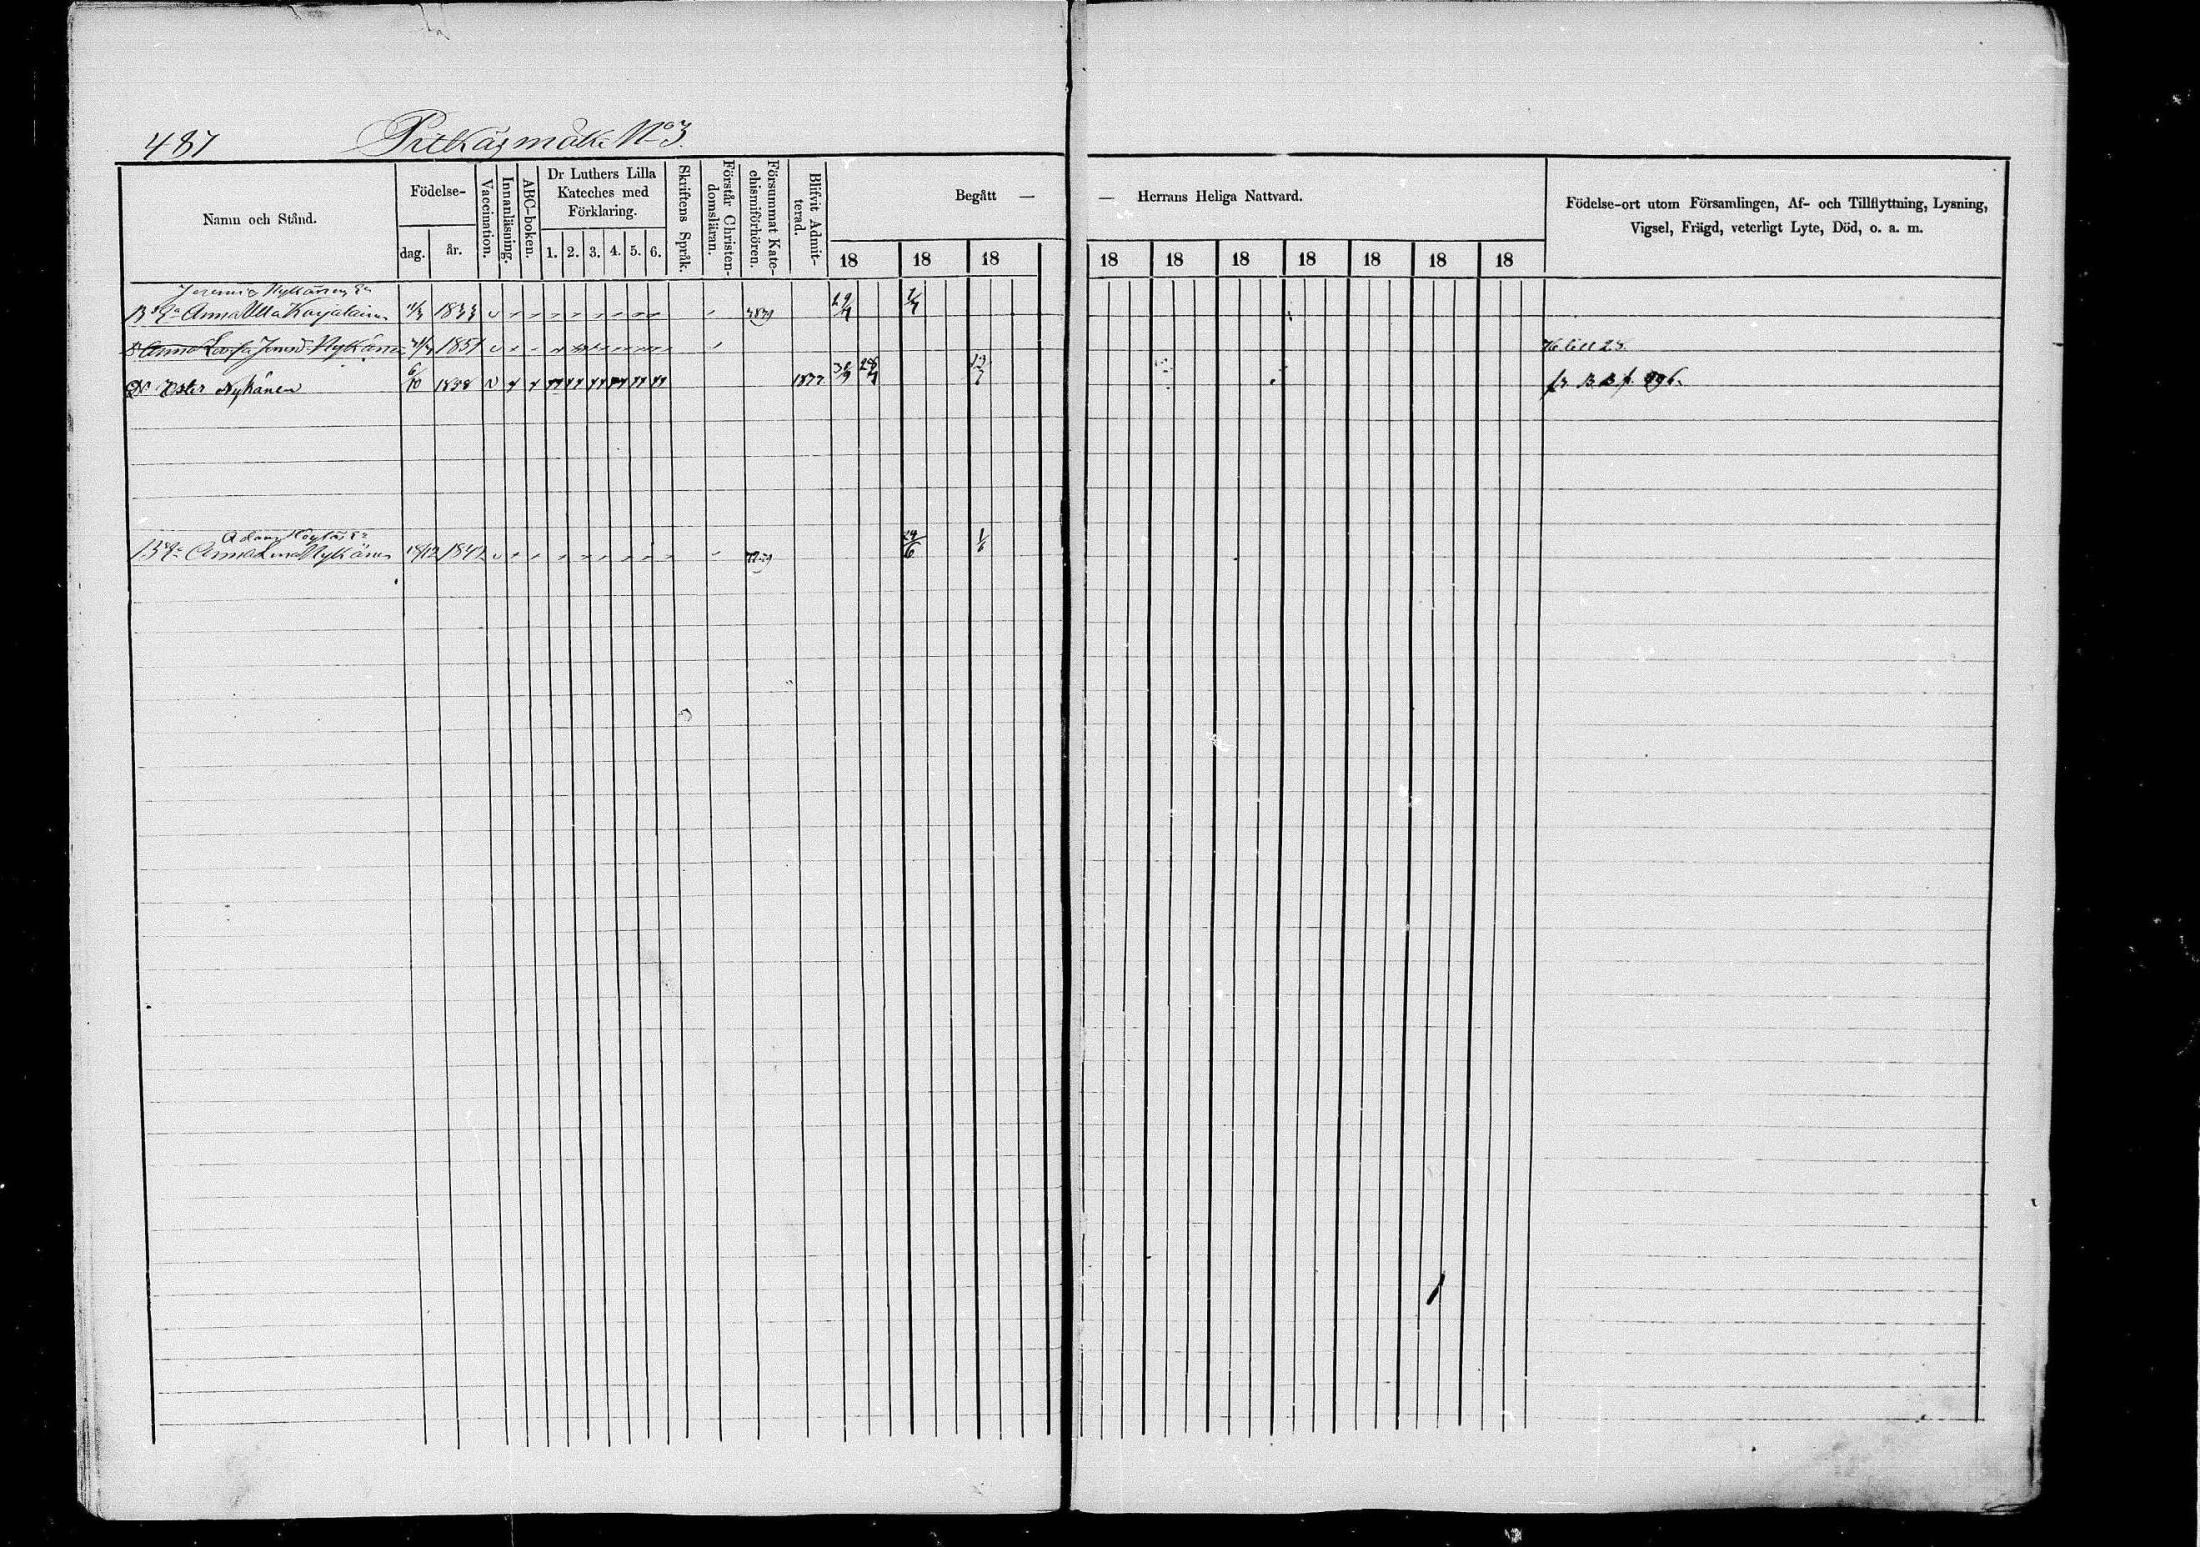 487 Pitkäsmäki No 3.
Namn och Stånd.
Födelse-
dag. år.
Vaccination.
Innanläsning.
ABC-boken.
Dr Luthers Lilla
Kateches med
Förklaring.
1. 2. 3. 4. 5. 6.
Skriftens Språk.
Förstår Christen-
domsläran.
Försummat Kate-
chismiförhören.
Blifvit Admit-
terad.
Begått — — Herrans Heliga Nattvard.
18 18 18 18 18 18 18 18 18 18
Födelse-ort utom Församlingen, Af- och Tillflyttning, Lysning,
Vigsel, Frägd, veterligt Lyte, Död, o. a. m.
Nykänen
Anna Ulla Karjalainen 1833 29/4
Anna Nykänen 1851
Ester Nykänen 6/10 1838 1877 fr B B f.
Adam
Anna Lena Nykänen 18/12 1842 29/6 1/6